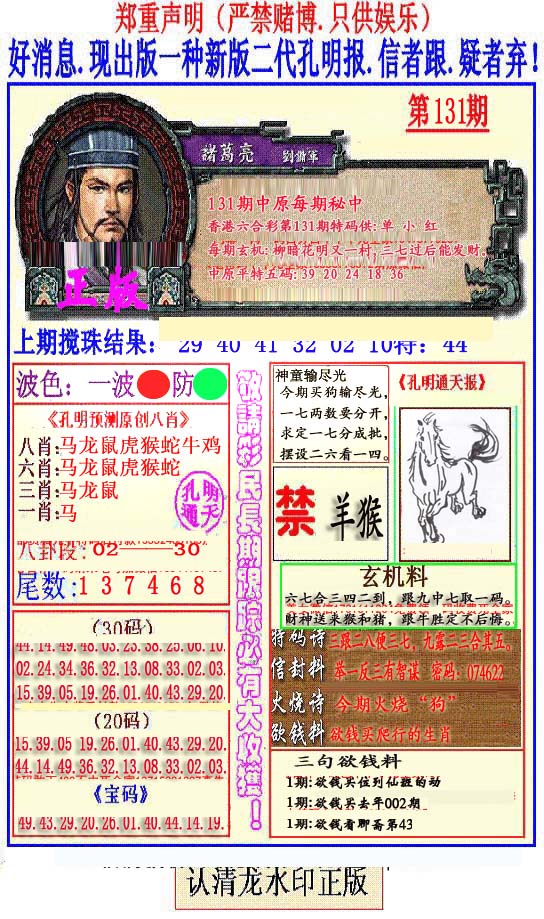 郑重声明（严禁赌博.只供娱乐）
好消息.现出版一种新版二代孔明报.信者跟.疑者弃!
第131期
諸葛亮 劉備軍
131期中原每期秘中
香港六合彩第131期特码供:单 小 红
每期玄机:柳暗花明又一村,三七过后能发财.
中原平特五码:39 20 24 18 36
正版
上期搅珠结果: 29 40 41 32 02 10特: 44
波色: 一波 防
《孔明预测原创八肖》
八肖:马龙鼠虎猴蛇牛鸡
六肖:马龙鼠虎猴蛇
三肖:马龙鼠
一肖:马
孔明通天
八卦段:02——30
尾数:1 3 7 4 6 8
(30码)
44.14.49.48.03.23.38.25.06.10.
02.24.34.36.32.13.08.33.02.03.
15.39.05.19.26.01.40.43.29.20.
(20码)
15.39.05 19.26.01.40.43.29.20.
44.14.49.36.32.13.08.33.02.03.
《宝码》
49.43.29.20.26.01.40.44.14.19.
敬請彩民長期跟踪必有大收獲!
神童输尽光
今期买狗输尽光,
一七两数要分开,
求定一七分成批,
摆设二六看一四。
《孔明通天报》
禁 羊猴
玄机料
六七合三四二到, 跟九中七取一码。
财神送来猴和猪, 跟牛胜定不后悔。
特码诗 三跟二八便三七, 九露二三合其五。
信封料 举一反三有智谋 密码: 074622
火烧诗 今期火烧“狗”
欲钱料 欲钱买爬行的生肖
三句欲钱料
1期:欲钱买住到仙班的动
1期:欲钱买去年002期
1期:欲钱看聊斋第43
认清龙水印正版